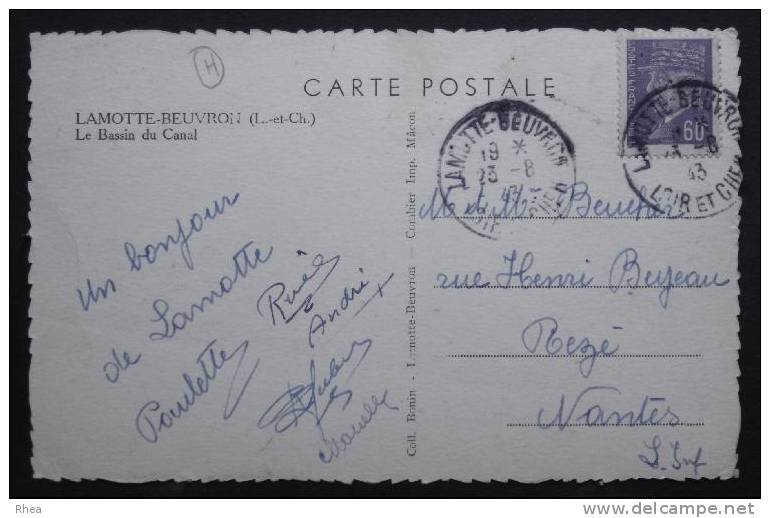 H
CARTE POSTALE
LAMOTTE-BEUVRON (L.-et-Ch.)
Le Bassin du Canal
Un bonjour
de Lamotte
Paulette
André
Coll. Bonin - Lamotte-Beuvron - Combier Imp. Mâcon
LAMOTTE-BEUVRON
19 *
23 -8
43
LOIR ET CHER
60
LAMOTTE-BEUVRON
-8
43
LOIR ET CHER
M et Mme
rue Henri
Rezé
Nantes
L. Inf
Rhea
www.delcampe.net